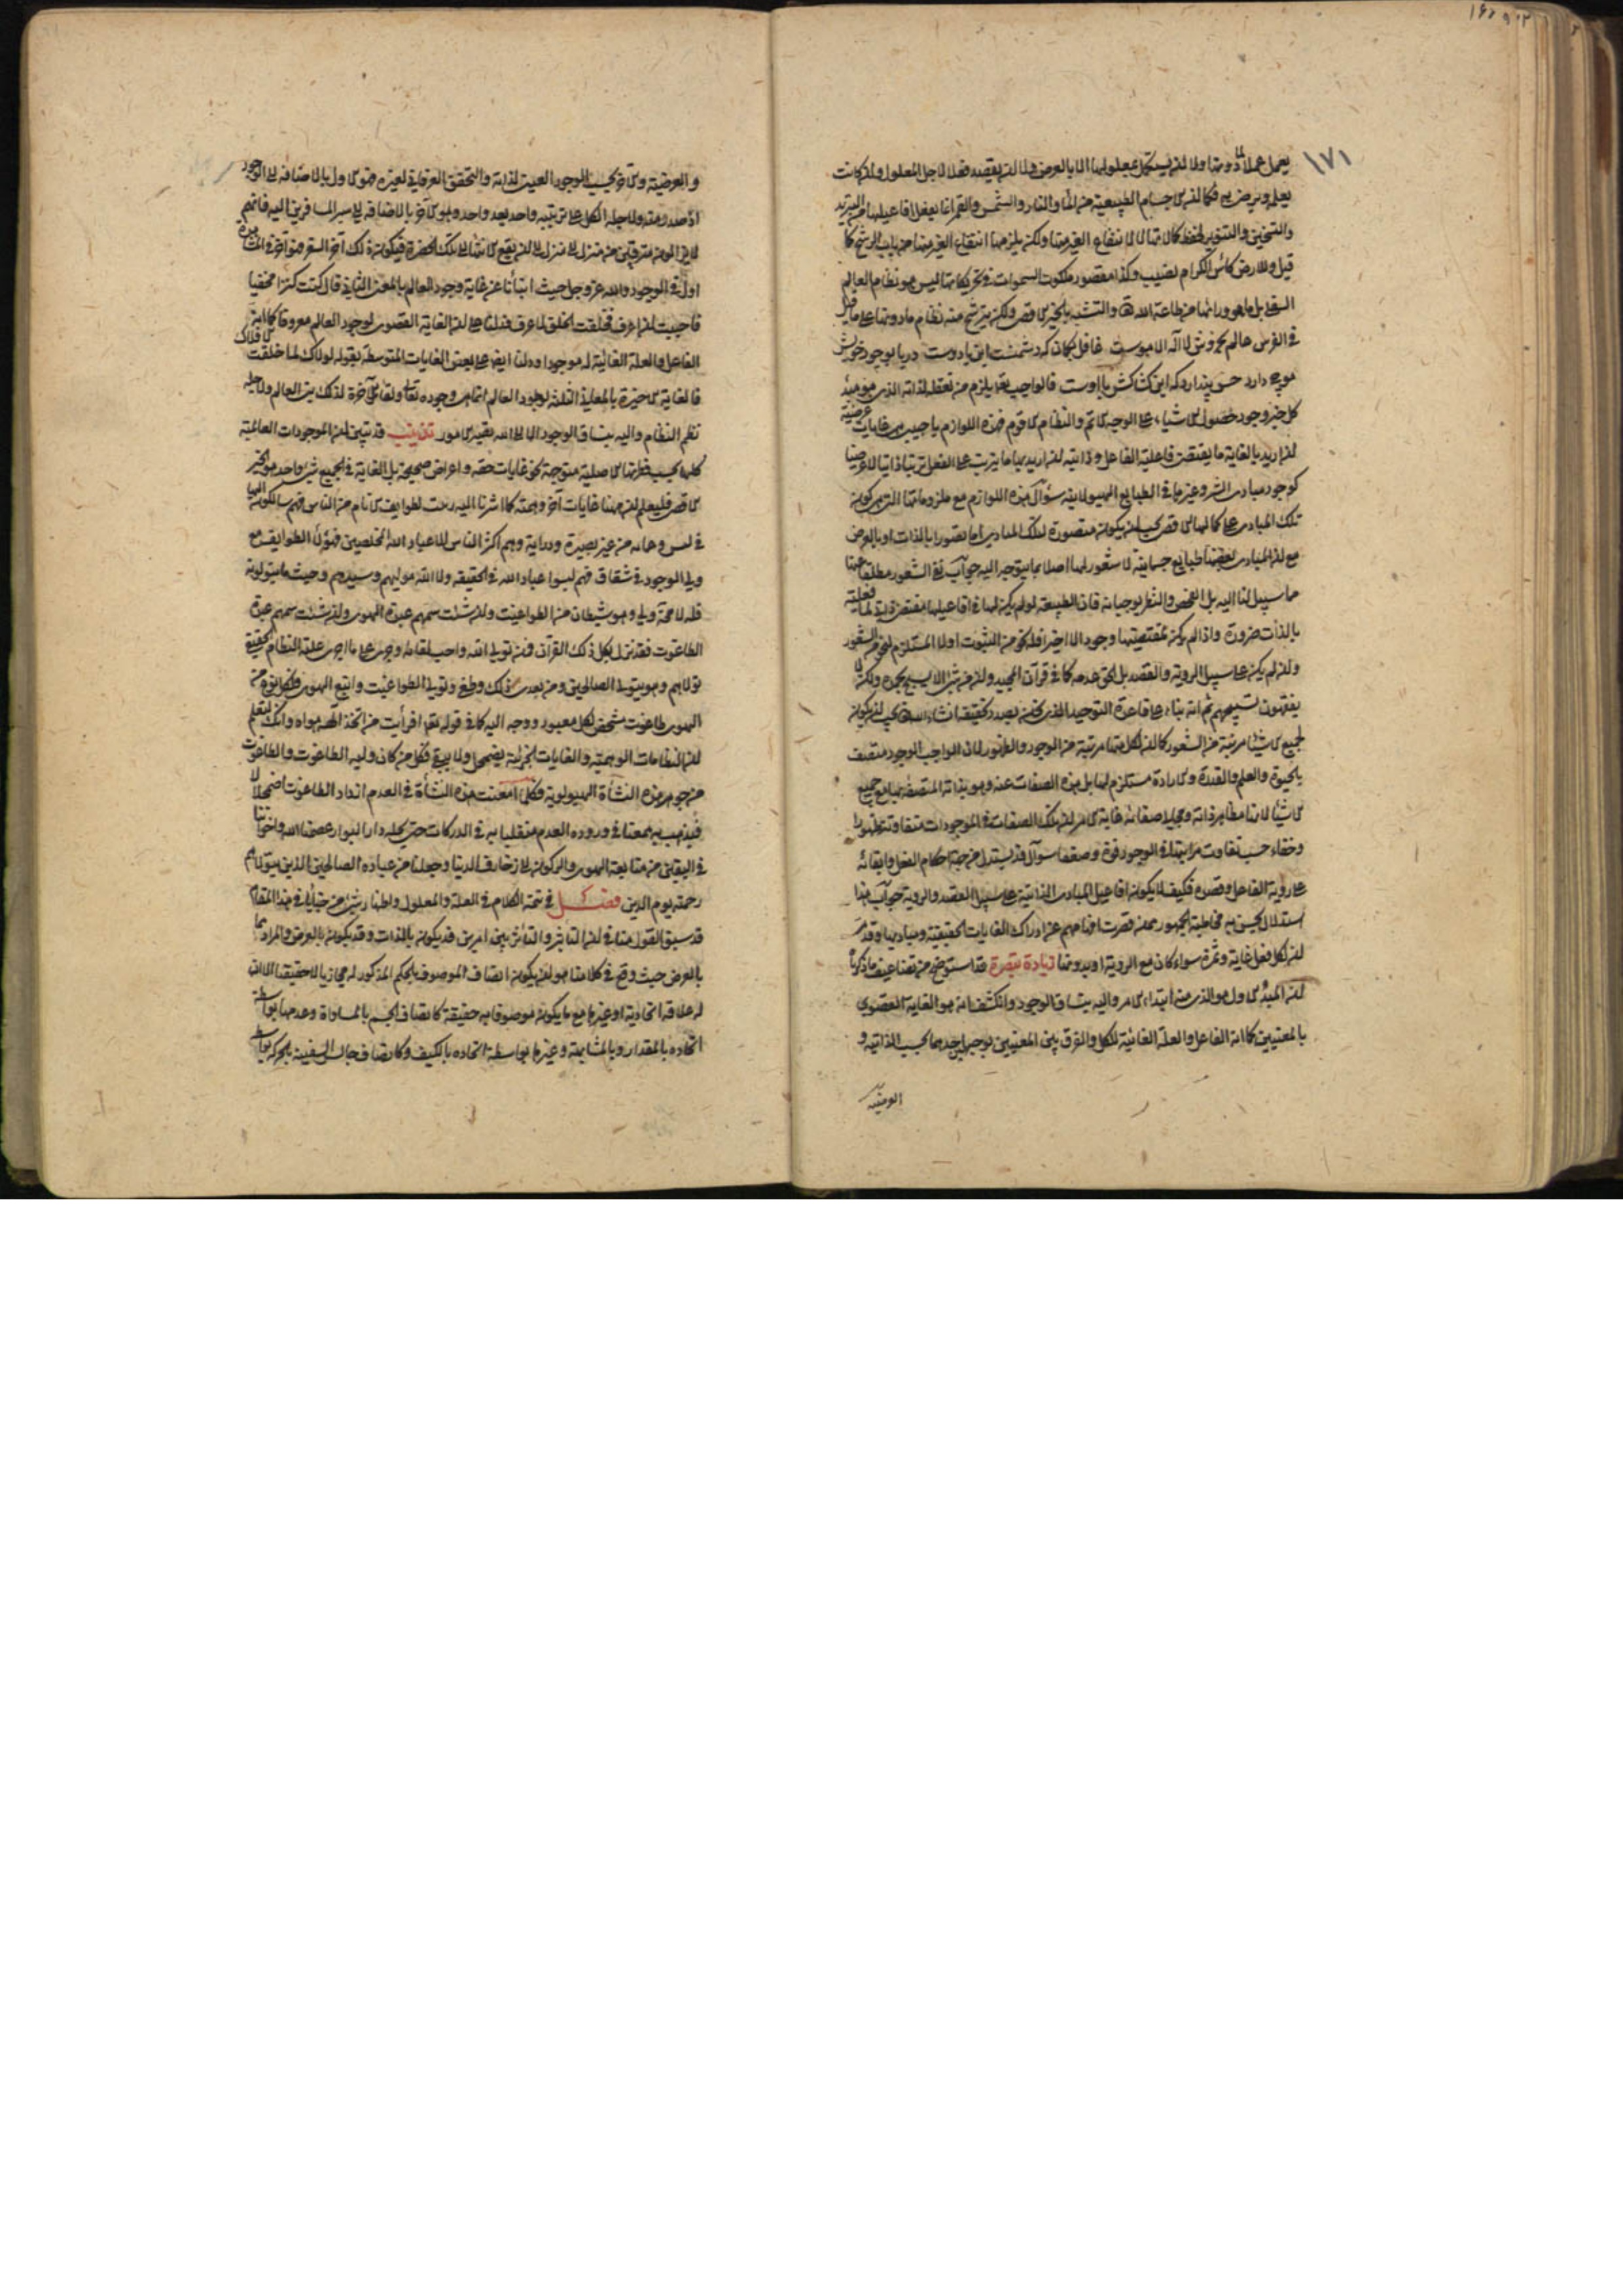 ١٧١
يعمل عملا لما دونها ولا لان يستكمل بمعلولها الا بالعرض ولا لان يقصد فعلا لاجل المعلول وان كانت
يعلمه ويرضى به فكما ان الاجسام الطبيعية من الماء والنار والشمس والقمر انما يفعل افاعيلها من التبريد
والتسخين والتنوير لحفظ كمالاتها لا لانتفاع الغير منها ولكن يلزمها انتفاع الغير منها من باب الرشح كما
قيل وللارض كاس الكرام نصيب وكذا مقصود ملكوت السموات في تحريكاتها ليس هو نظام العالم
السفلي بل ما هو ورائها من طاعة الله تعالى والتشبه بالخير الاقصى ولكن يترشح منه نظام ما دونها على ما قيل
في الفرس عالم بخروش لا اله الا هوست غافل بگمان که دشمنست این یا دوست دریا بوجود خویش
موجی دارد خس پندارد که این کشاکش با اوست فالواجب تعالى يلزم من تعقله لذاته الذي هو مبدء
كل خير وجود حصول الاشياء على الوجه الاتم والنظام الاقوم فهذه اللوازم يا حبيبي هي غايات عرضية
ان اريد بالغاية ما يقتضي فاعلية الفاعل وذاتية ان اريد بها ما يترتب على الفعل ترتبا ذاتيا لا عرضيا
كوجود مبادي الشر وغيرها في الطبايع الهيولانية سؤال هذه اللوازم مع ملزوماتها التي هي كون
تلك المبادي على كمالها الاقصى يجب ان يكون متصورة لتلك المبادي اما تصورا بالذات او بالعرض
مع ان المبادي بعضها طبايع جسمانية لا شعور لها اصلا بما يتوجه اليه جواب نفي الشعور مطلقا عنها
مما سبيل لنا اليه بل الفحص والنظر يوجبانه فان الطبيعة لو لم يكن لها في افاعيلها مقتضى ذاتي لما فعلته
بالذات ضرورة واذا لم يكن لمقتضيتها وجود الا اخيرا فله نحو من الثبوت اولا المستلزم لنحو من الشعور
وان لم يكن على سبيل الروية والقصد بل الحق عدمه كما في قرآن المجيد وان من شيء الا يسبح بحمده ولكن لا
يفقهون تسبيحهم ثم انه بناء على قاعدة التوحيد الذي نحن بصدد تحقيقه انشاء الله تعالى يجب ان يكون
لجميع الاشياء مرتبة من الشعور كما ان لكل منها مرتبة من الوجود والظهور لان الواجب الوجود متصف
بالحيوة والعلم والقدرة والارادة مستلزم لها بل هذه الصفات عينه وهو بذاته المتصفة بها مع جميع
الاشياء لانها مظاهر ذاته ومجالي صفاته غاية الامر ان تلك الصفات في الموجودات متفاوتة ظهورا
وخفاء حسب تفاوت مراتبها في الوجود قوة وضعفا سؤال قد يستدل من جهة احكام الفعل واتقانه
على روية الفاعل وقصده فكيف لا يكون افاعيل المبادي الذاتية على سبيل القصد والروية جواب هذا
استدلال يحسن به مخاطبة الجمهور ممن قصرت افهامهم عن ادراك الغايات الحقيقية ومباديها وقد مر
ان لكل فعل غاية وثمرة سواء كان مع الروية او بدونها زيادة تبصرة قد استوضح من تضاعيف ما ذكرناه
ان المبدء الاول هو الذي منه ابتداء الامر واليه ينساق الوجود وانكشف انه هو الغاية القصوى
بالمعنيين كما انه الفاعل والعلة الغائية للكل والفرق بين المعنيين بوجهين احدهما بحسب الذاتية و
العرضية
والعرضية والآخر بحسب الوجود العيني لذاته والتحقق العرفاني لغيره فهو الاول بالاضافة الى الوجود
اذ صدر منه ولاجله الكل على ترتيبه واحد بعد واحد وهو الآخر بالاضافة الى سير المسافرين اليه فانهم
لا يزالون مترقين من منزل الى منزل الى ان يقع الانتهاء الى تلك الحضرة فيكون ذلك آخر السفر فهو آخر في المشاهدة
اول في الوجود والله عز وجل حيث انبأنا عن غاية وجود العالم بالمعنى الثاني قال كنت كنزا مخفيا
فاحببت ان اعرف فخلقت الخلق لاعرف فدلنا على ان الغاية القصوى لوجود العالم معروفا كما انه
الفاعل والعلة الغائية له موجودا ودلنا ايضا على بعض الغايات المتوسطة بقوله لولاك لما خلقت الافلاك
فالغاية الاخيرة بالمعاني الثلثة لوجود العالم انما هي وجوده تعالى ولقاء الآخرة لذلك بنى العالم ولاجله
نظم النظام واليه ينساق الوجود الا الى الله تصير الامور تذنيب قد تبين ان الموجودات العالمية
كلها بحسب فطرتها الاصلية متوجهة نحو غايات حقة واغراض صحيحة بل الغاية في الجميع شيء واحد هو الخير
الاقصى فليعلم ان ههنا غايات اخر وهمية كما اشرنا اليه زينت لطوايف الانام من الناس فهم سالكون اليها
في لبس وعماء من غير بصيرة ودراية وهم اكثر الناس الا عباد الله المخلصين فهؤلاء الطوايف مع
ولي الوجود في شقاق فهم ليسوا عباد الله في الحقيقة ولا الله موليهم وسيدهم وحيث ما يتولونه
فله لا محة ولي وهو شيطان من الطواغيت وان شئت سمهم عبدة الهوى وان شئت سمهم عبدة
الطاغوت فقد نزل بكل ذلك القران فمن تولى الله واحب لقائه وجرى على ما اجرى عليه النظام الحقيقي
تولاهم وهو يتولى الصالحين ومن تعدى ذلك وطغى وتولى الطواغيت واتبع الهوى فلكل نوع من
الهوى طاغوت مشخص لكل معبود ووجه اليه كما في قوله تعالى افرأيت من اتخذ الهه هواه وانك لتعلم
ان النظامات الوهمية والغايات الجزئية يضمحل ولا يبقى فكل من كان وليه الطاغوت والطاغوت
من جوهر هذه النشأة الهيولوية فكلما امعنت هذه النشأة في العدم ازداد الطاغوت اضمحلالا
فيذهب به ممعنا في وروده العدم منقلبا به في الدركات حتى يحله دار البوار عصمنا الله واخواننا
في اليقين من متابعة الهوى والركون الى زخارف الدنيا وجعلنا من عباده الصالحين الذين يتولاهم
رحمته يوم الدين فصل في تتمة الكلام في العلة والمعلول واظهار شيء من خبايا في هذا المقام
قد سبق القول منا في ان التاثير والتاثر بين امرين قد يكون بالذات وقد يكون بالعرض والمراد بما
بالعرض حيث وقع في كلامنا هو ان يكون اتصاف الموصوف بالحكم المذكور له مجازيا لا حقيقيا الا ان
له علاقة اتحادية او غيرها مع ما يكون موصوفا به حقيقة كاتصاف الجسم بالمساواة وعدمها بواسطة
اتحاده بالمقدار وبالمشابهة وغيرها بواسطة اتحاده بالكيف وكاتصاف جالس السفينة بالحركة بواسطة